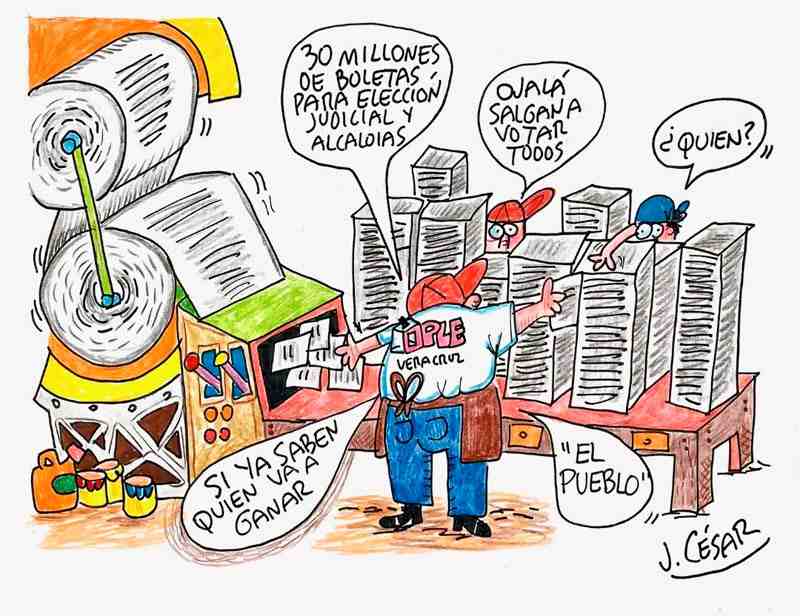 30 MILLONES
DE BOLETAS
PARA ELECCIÓN
JUDICIAL Y
ALCALDIAS
OJALÁ
SALGAN A
VOTAR
TODOS
SI YA SABEN
QUIEN VA A
GANAR
¿QUIEN?
"EL
PUEBLO"
OPLE
VERACRUZ
J. CÉSAR